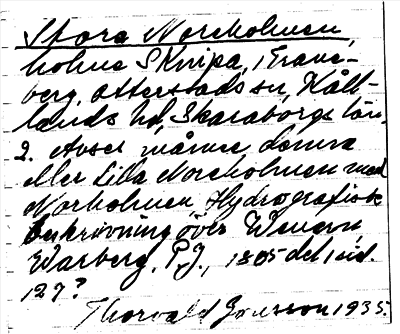 Stora Norsholmen,
holme S Knipa, i Trane-
berg, Otterstads sn, Kål-
lands hd, Skaraborgs län.
2. Avser månne denna
eller Lilla Norsholmen med
Norholmen Hydrografisk
beskrivning över Wenern,
Warberg, P.J., 1805 del 1 sid.
127?
Thorvald Jonsson 1935.